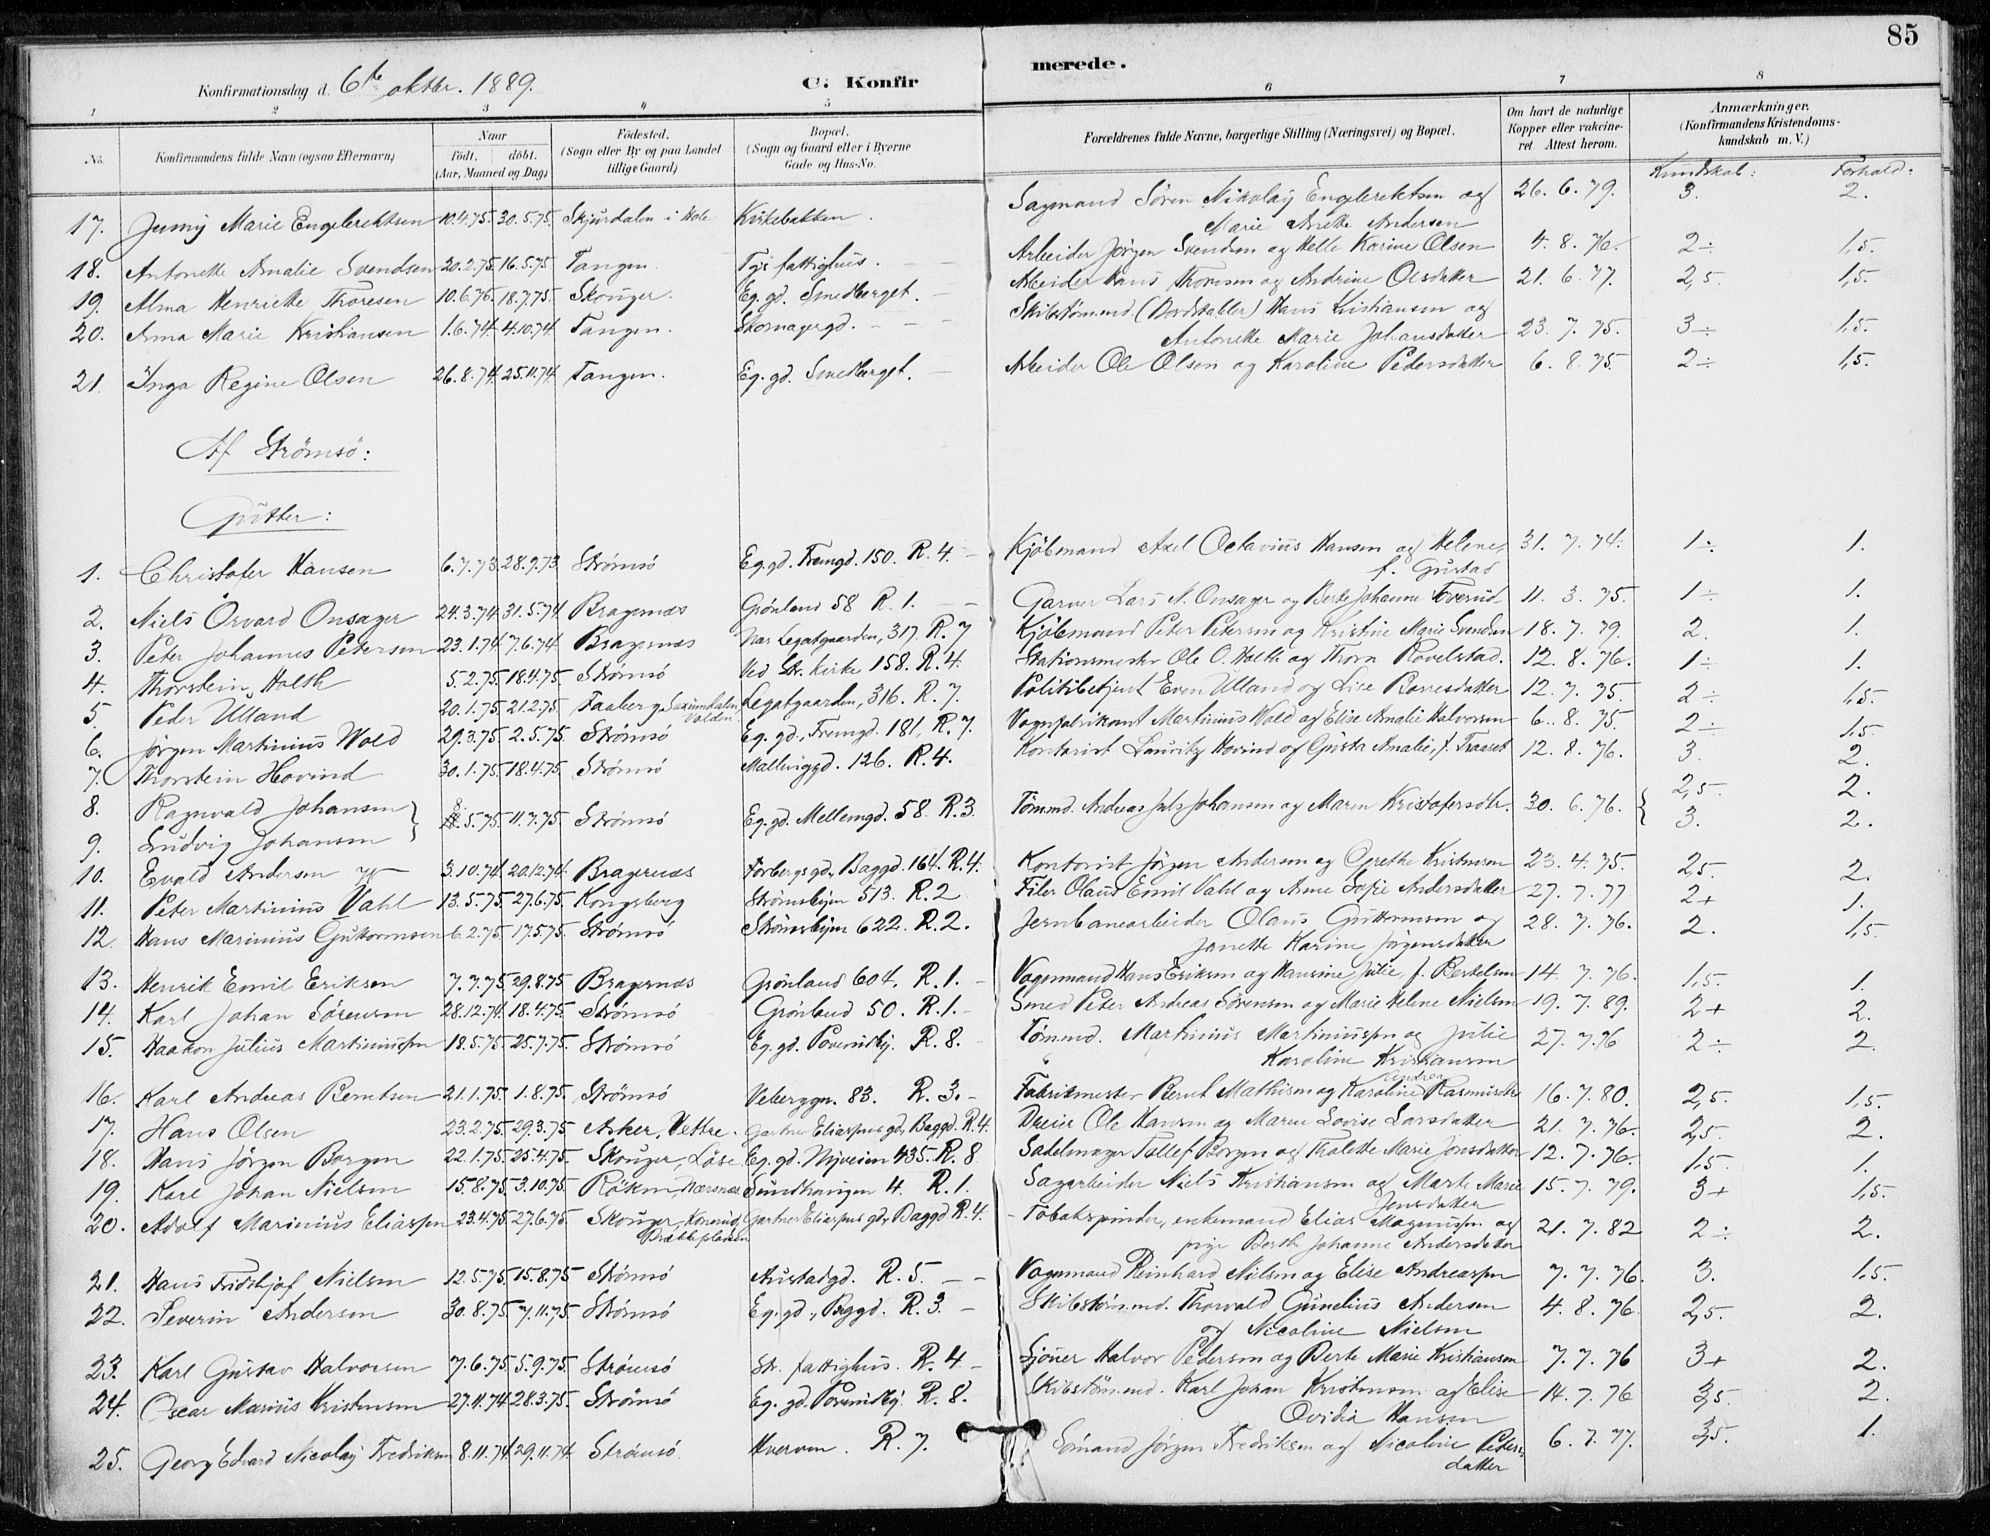 85
Konfirmationsdag d. 6te oktbr. 1889.
C. Konfirmerede.
1 2 3 4 5 6 7 8
No. Konfirmandens fulde Navn (ogsaa Efternavn) Naar født. døbt. (Aar, Maaned og Dag) Fødested. (Sogn eller By og paa Landet tillige Gaard) Bopæl. (Sogn og Gaard eller i Byerne Gade og Hus-No. Forældrenes fulde Navne, borgerlige Stilling (Næringsvei) og Bopæl. Om havt de naturlige Kopper eller vakcineret. Attest herom. Anmærkninger. (Konfirmandens Kristendomskundskab m. V.)
Kundskab: Forhold:
17. Jenny Marie Engebrektsen 10.4.75. 30.5.75. Skjærdalen i Hole Kirkebakken. Sagmand Søren Nikolay Engebrektsen og 26. 6. 79. 3. 2.
Marie Anette Andersen
18. Antonette Amalie Svendsen 20.2.75. 16.5.75 Tangen. Tgs fattighus. Arbeider Jørgen Svendsen og Helle Karine Olsen 4. 8. 76. 2÷ 1,5.
19. Alma Henriette Thoresen 10.6.75. 18.7.75. Skouger. Eg. gd. Smedberget. Arbeider Hans Thoresen og Andrine Olsdatter 21. 6. 77. 2,5. 1,5.
20. Anna Marie Kristiansen 1.6.74. 4.10.74. Tangen. Skomagergd. Skibstømmd (Bordstabler) Hans Kristiansen og
Antonette Marie Johansdatter 23. 7. 75. 3÷ 1,5.
21. Inga Regine Olsen 26.8.74. 25.11.74. Tangen. Eg. gd. Smedberget. Arbeider Ole Olsen og Karoline Pedersdatter 6. 8. 75. 2÷ 1,5.
Af Strømsö:
Gutter:
1. Christofer Hansen 6.7.73. 28.9.73. Strømsö Eg. gd. Tremgd. 150. R. 4. Kjöbmand Axel Octavius Hansen og Helene, 31. 7. 74. 1÷ 1.
f. Gustad
2. Niels Orvard Onsager 24.3.74. 31.5.74. Bragernæs Grønland 58 R. 1. Garver Lars N. Onsager og Berte Johanne Toverud 11. 3. 75. 1÷ 1.
3. Peter Johannes Petersen 23.1.74. 7.6.74. Bragernæs Nær Legatgaarden, 317. R. 7 Kjöbmand Peter Petersen og Kristine Marie Svendsen 18. 7. 79. 2. 1.
4. Thorstein Holth 5.2.75. 18.4.75 Strømsö Ved Str. kirke 158. R. 4. Stationsmester Ole O. Holth og Thora Rovelstad. 12. 8. 76. 1÷ 1.
5. Peder Ulland 20.1.75. 21.2.75. Faaberg, Volden Legatgaarden, 316. R. 7. Politibetjent Even Ulland og Lise Borresdatter 12. 7. 75. 2÷ 1,5.
6. Jørgen Martinius Wold 29.3.75. 2.5.75. Strømsö Eg. gd., Tremgd. 181, R. 7. Vognfabrikant Martinius Wold og Elise Amalie Halvorsen 6. 8. 75. 2÷ 1.5.
7. Thorstein Hovind 30.1.75. 18.4.75. Strømsö Mallinggd. 126. R. 4. Kontorist Lauritz Hovind og Gusta Amalie, f. Traaset 12. 8. 76. 3. 2.
8. Ragnvald Johansen 2,5. 2.
9. Ludvig Johansen 8.5.75. 11.7.75. Strømsö Eg. gd. Mellemgd. 58. R. 3. Tømmd. Andreas Juls Johansen og Maren Kristofersdtr. 30. 6. 76. 3. 2.
10. Evald Andersen 3.10.74. 20.12.74. Bragernæs Forbergsgd, Baggd. 164. R. 4. Kontorist Jørgen Andersen og Grethe Kristensen 23. 4. 75. 2,5. 2.
11. Peter Martinius Vahl 13.5.75. 27.6.75. Kongsberg Strømsbyen 513. R. 2. Filer Olaus Emil Vahl og Anne Sofie Andersdatter 27. 7. 77 2+ 1.
12. Hans Marinius Guttormsen 6.2.75. 17.5.75. Strømsö Strømsbyen 622. R. 2. Jernbanearbeider Olaus Guttormsen og 28. 7. 76. 2. 1,5.
Janette Karine Jørgensdatter
13. Henrik Emil Eriksen 7.7.75. 29.8.75. Bragernæs Grønland 604, R. 1. Vognmand Hans Eriksen og Hansine Julie, f. Bertelsen 14. 7. 76. 1,5. 1.
14. Karl Johan Sørensen 28.12.74. 18.4.75. Strømsö Grønland 50. R. 1. Smed Peter Andreas Sørensen og Marie Helene Nielsen 19. 7. 89. 2+ 2.
15. Haakon Julius Martiniussen 18.5.75. 25.7.75. Strømsö Eg. gd. Poverudbj. R. 8. Tømmd. Martinius Martiniussen og Julie 27. 7. 76 2÷ 2.
Karoline Kristiansen
16. Karl Andreas Berntsen 21.1.75. 1.8.75. Strømsö Veberggn. 83. R. 3. Fabrikmester Bernt Mathisen og Karoline Andrea Rasmusdtr 16. 7. 80. 2,5. 1,5.
17. Hans Olsen 23.2.75. 29.3.75 Asker, Vettre. Gartner Eliassens gd, Baggd. R. 4. Dreier Ole Hansen og Maren Lovise Larsdatter 21. 7. 76. 2,5. 2.
18. Hans Jörgen Borgen 22.1.75. 25.4.75. Skouger, Löse Eg. gd. Nyveien 435. R. 8 Sadelmager Tollef Borgen og Thalette Marie Jonsdatter 12. 7. 76. 1.5. 1.
19. Karl Johan Nielsen 15.8.75. 3.10.75. Röken, Nærsnæs Sundhaugen 4. R. 1. Sagarbeider Niels Kristiansen og Marte Marie 15. 7. 79. 3+ 1,5.
Jonsdatter
20. Adolf Marinius Eliassen 23.4.75. 27.6.75. Skouger, Konerud, Gartner Eliassens gd, Baggd R. 4. Tobakspinder, enkemand Elias Magnussen og 21. 7. 82 2÷ 2.
pige Berthe Johanne Andersdatter
21. Hans Fridthjof Nielsen 12.5.75. 15.8.75 Strømsö Austadgd. R. 5. Vognmand Reinhard Nielsen og Elise Andreassen 7. 7. 76. 3. 1.5.
22. Severin Andersen 30.8.75. 7.11.75. Strømsö Eg. gd., Baggd. R. 3. Skibstømmd. Thorvald Gunelius Andersen 4. 8. 76. 2,5. 2.
og Nicoline Nielsen
23. Karl Gustav Halvorsen 7.6.75. 5.9.75. Strømsö Str. fattighus. R. 4 Sjøner Halvor Pedersen og Berte Marie Kristiansen 7. 7. 76 3+ 2.
24. Oscar Marius Kristensen 27.11.74. 28.3.75. Strømsö Eg. gd. Poverudbj. R. 8. Skibstømmd. Karl Johan Kristensen og Elise 14. 7. 76 3,5. 2.
Ovidia Hansen
25. Georg Edvard Nicolay Fredriksen 8.11.74. 29.11.74. Strømsö. Hverven. R. 7. Sömand Jørgen Fredriksen og Nicoline Peters- 6. 7. 77. 3,5. 1.
datter